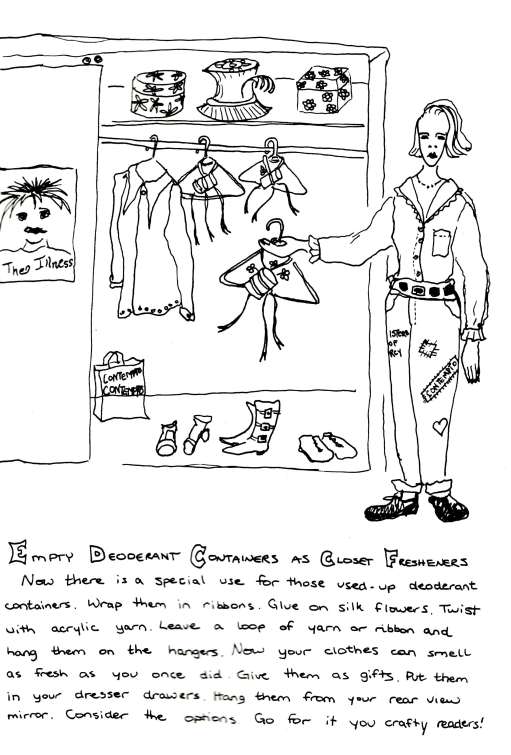 Theo Illness
CONTEMPO
CONTEMPO
ISTERS
OF
RCY
CONTEMPO
EMPTY DEODERANT CONTAINERS AS CLOSET FRESHENERS
Now there is a special use for those used-up deoderant
containers. Wrap them in ribbons. Glue on silk flowers. Twist
with acrylic yarn. Leave a loop of yarn or ribbon and
hang them on the hangers. Now your clothes can smell
as fresh as you once did. Give them as gifts. Put them
in your dresser drawers. Hang them from your rear view
mirror. Consider the options. Go for it you crafty readers!